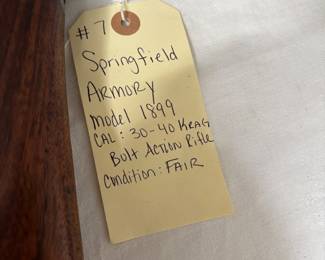 #7
Springfield
ARMORY
model 1899
CAL: 30-40 KRAG
Bolt Action Rifle
Condition: FAIR